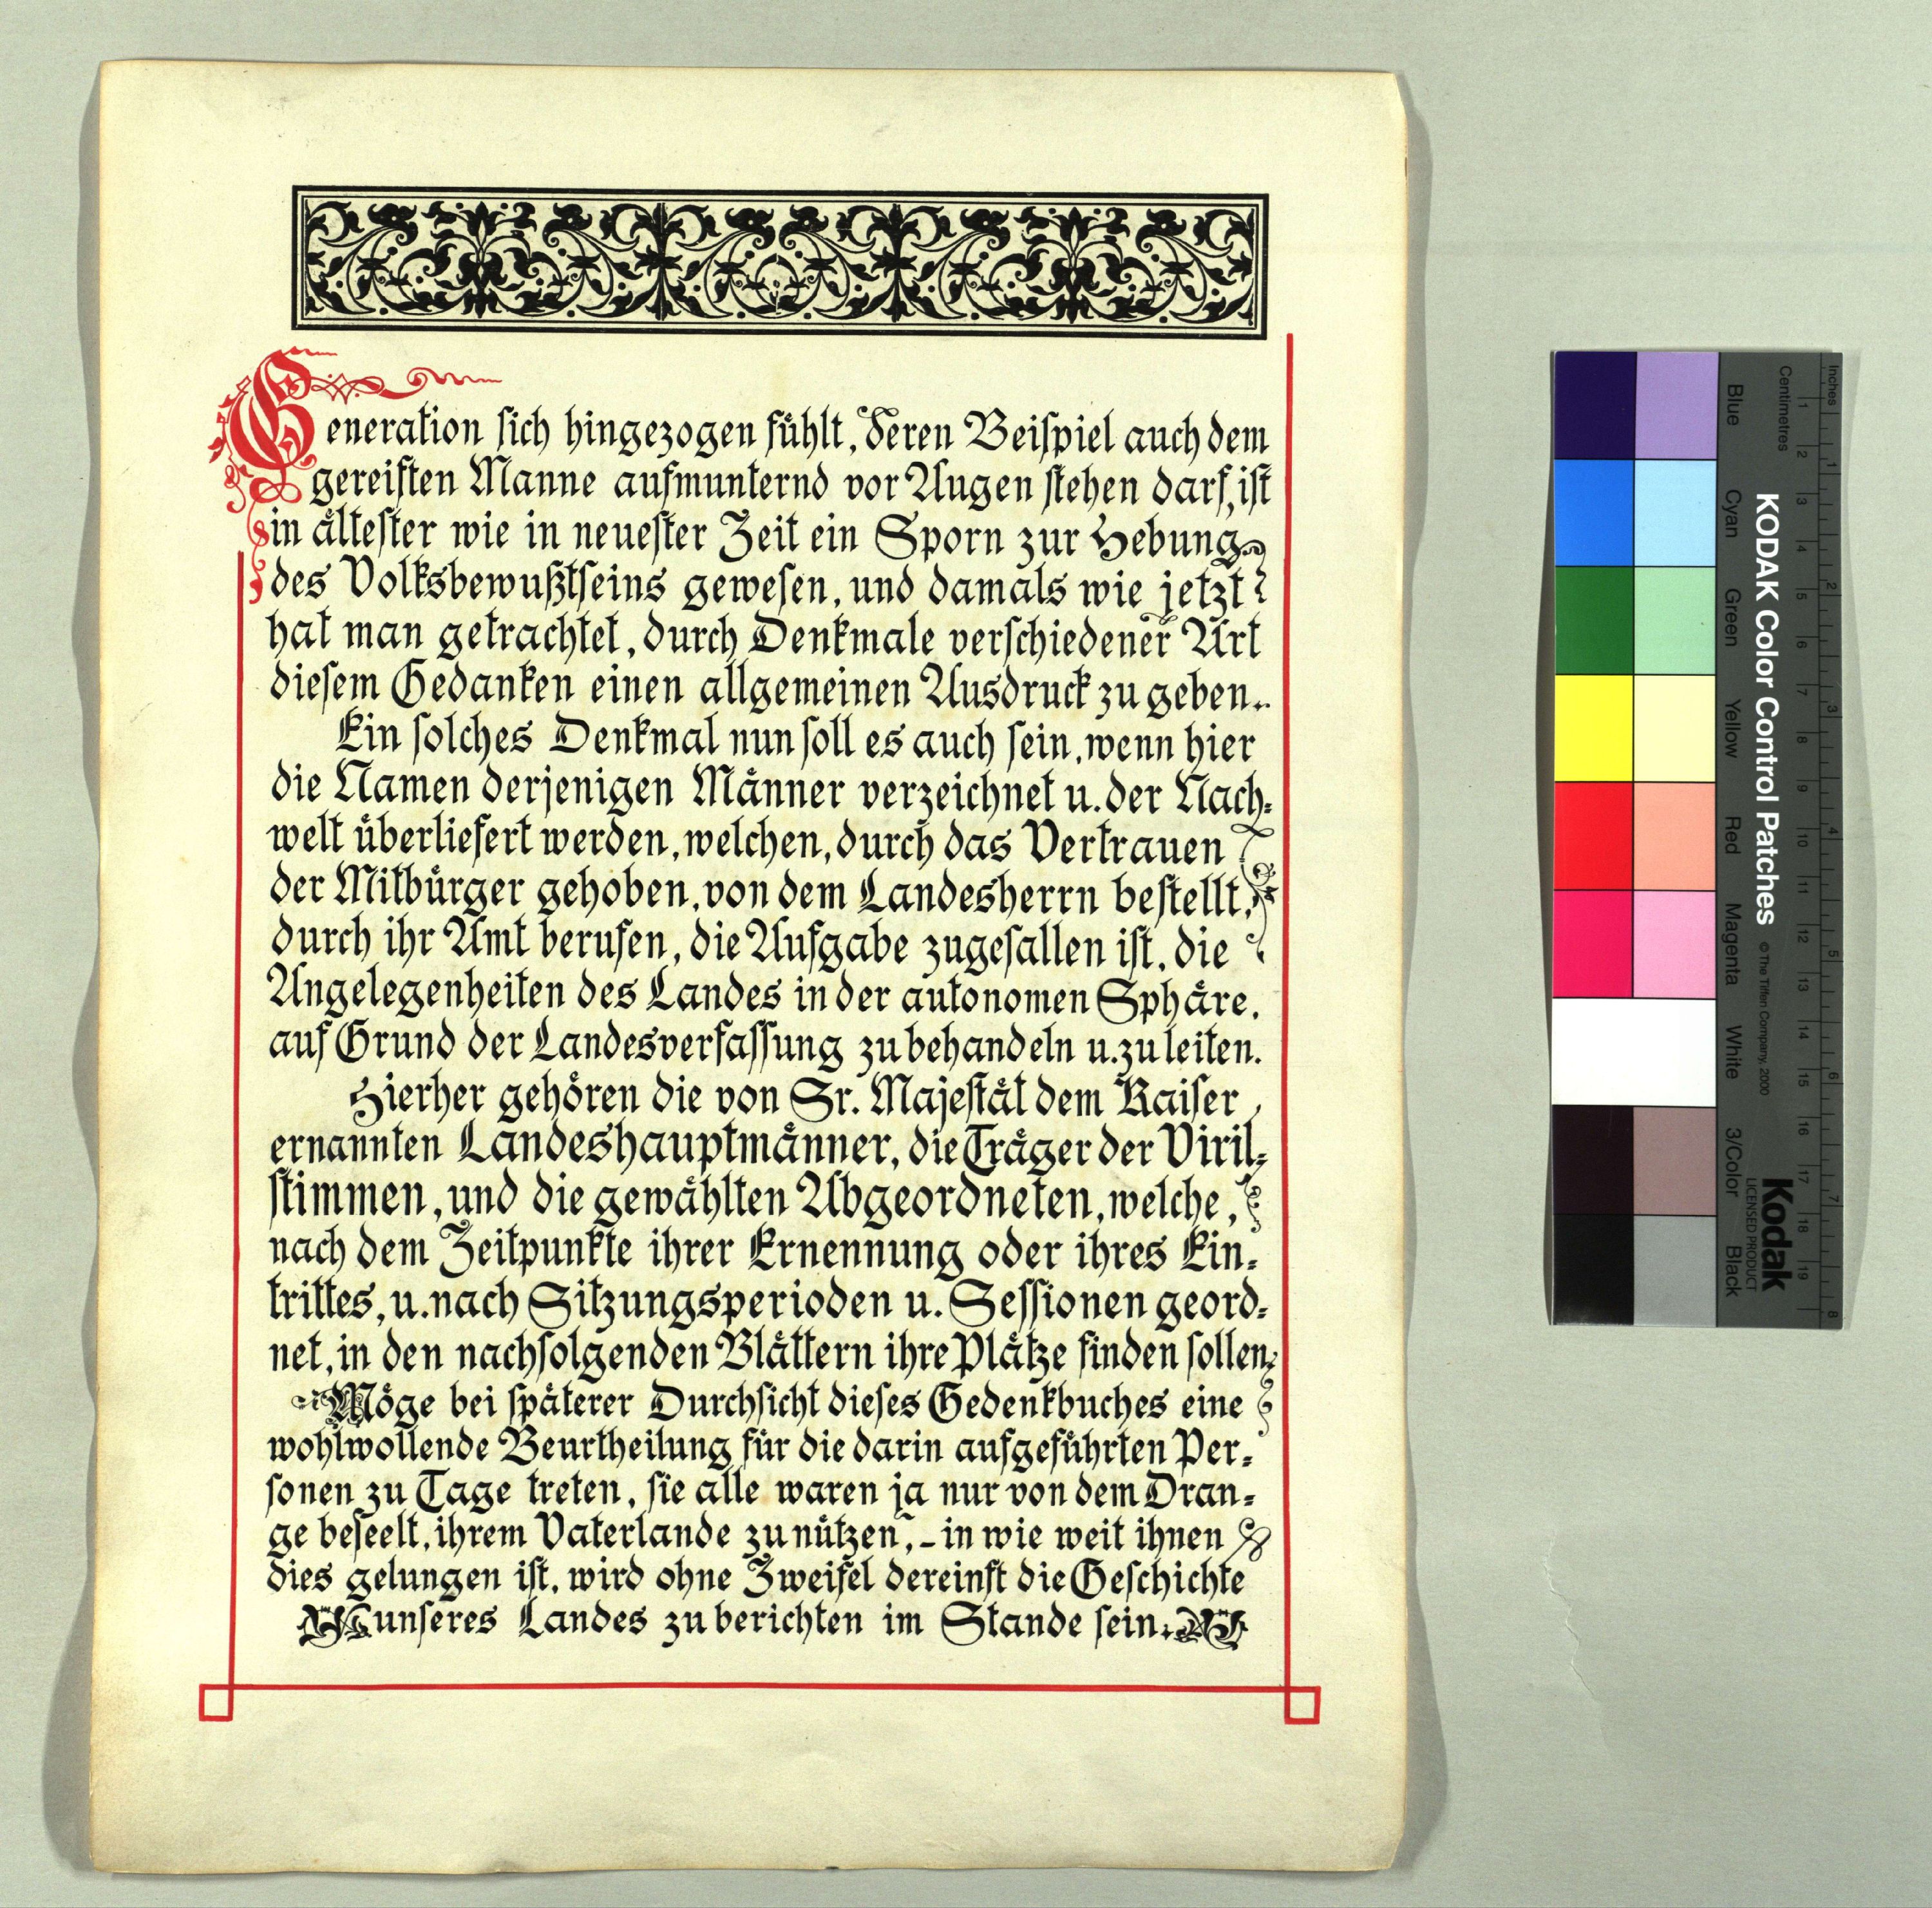 Generation sich hingezogen fühlt, deren Beispiel auch dem
gereiften Manne aufmunternd vor Augen stehen darf, ist
in ältester wie in neuester Zeit ein Sporn zur Hebung
des Volksbewußtseins gewesen, und damals wie jetzt
hat man getrachtet, durch Denkmale verschiedener Art
diesem Gedanken einen allgemeinen Ausdruck zu geben.
Ein solches Denkmal nun soll es auch sein, wenn hier
die Namen derjenigen Männer verzeichnet u. der Nach-
welt überliefert werden, welchen, durch das Vertrauen
der Mitbürger gehoben, von dem Landesherrn bestellt,
durch ihr Amt berufen, die Aufgabe zugefallen ist, die
Angelegenheiten des Landes in der autonomen Sphäre,
auf Grund der Landesverfassung zu behandeln u. zu leiten.
Hierher gehören die von Sr. Majestät dem Kaiser
ernannten Landeshauptmänner, die Träger der Viril-
stimmen, und die gewählten Abgeordneten, welche,
nach dem Zeitpunkte ihrer Ernennung oder ihres Ein-
trittes, u. nach Sitzungsperioden u. Sessionen geord-
net, in den nachfolgenden Blättern ihre Plätze finden sollen.
Möge bei späterer Durchsicht dieses Gedenkbuches eine
wohlwollende Beurtheilung für die darin aufgeführten Per-
sonen zu Tage treten, sie alle waren ja nur von dem Dran-
ge beseelt, ihrem Vaterlande zu nützen, - in wie weit ihnen
dies gelungen ist, wird ohne Zweifel dereinst die Geschichte
unseres Landes zu berichten im Stande sein.
Inches
Centimetres
1 2 3 4 5 6 7 8 9 10 11 12 13 14 15 16 17 18 19
1 2 3 4 5 6 7 8
KODAK Color Control Patches
© The Tiffen Company, 2000
Kodak
LICENSED PRODUCT
Blue Cyan Green Yellow Red Magenta White 3/Color Black